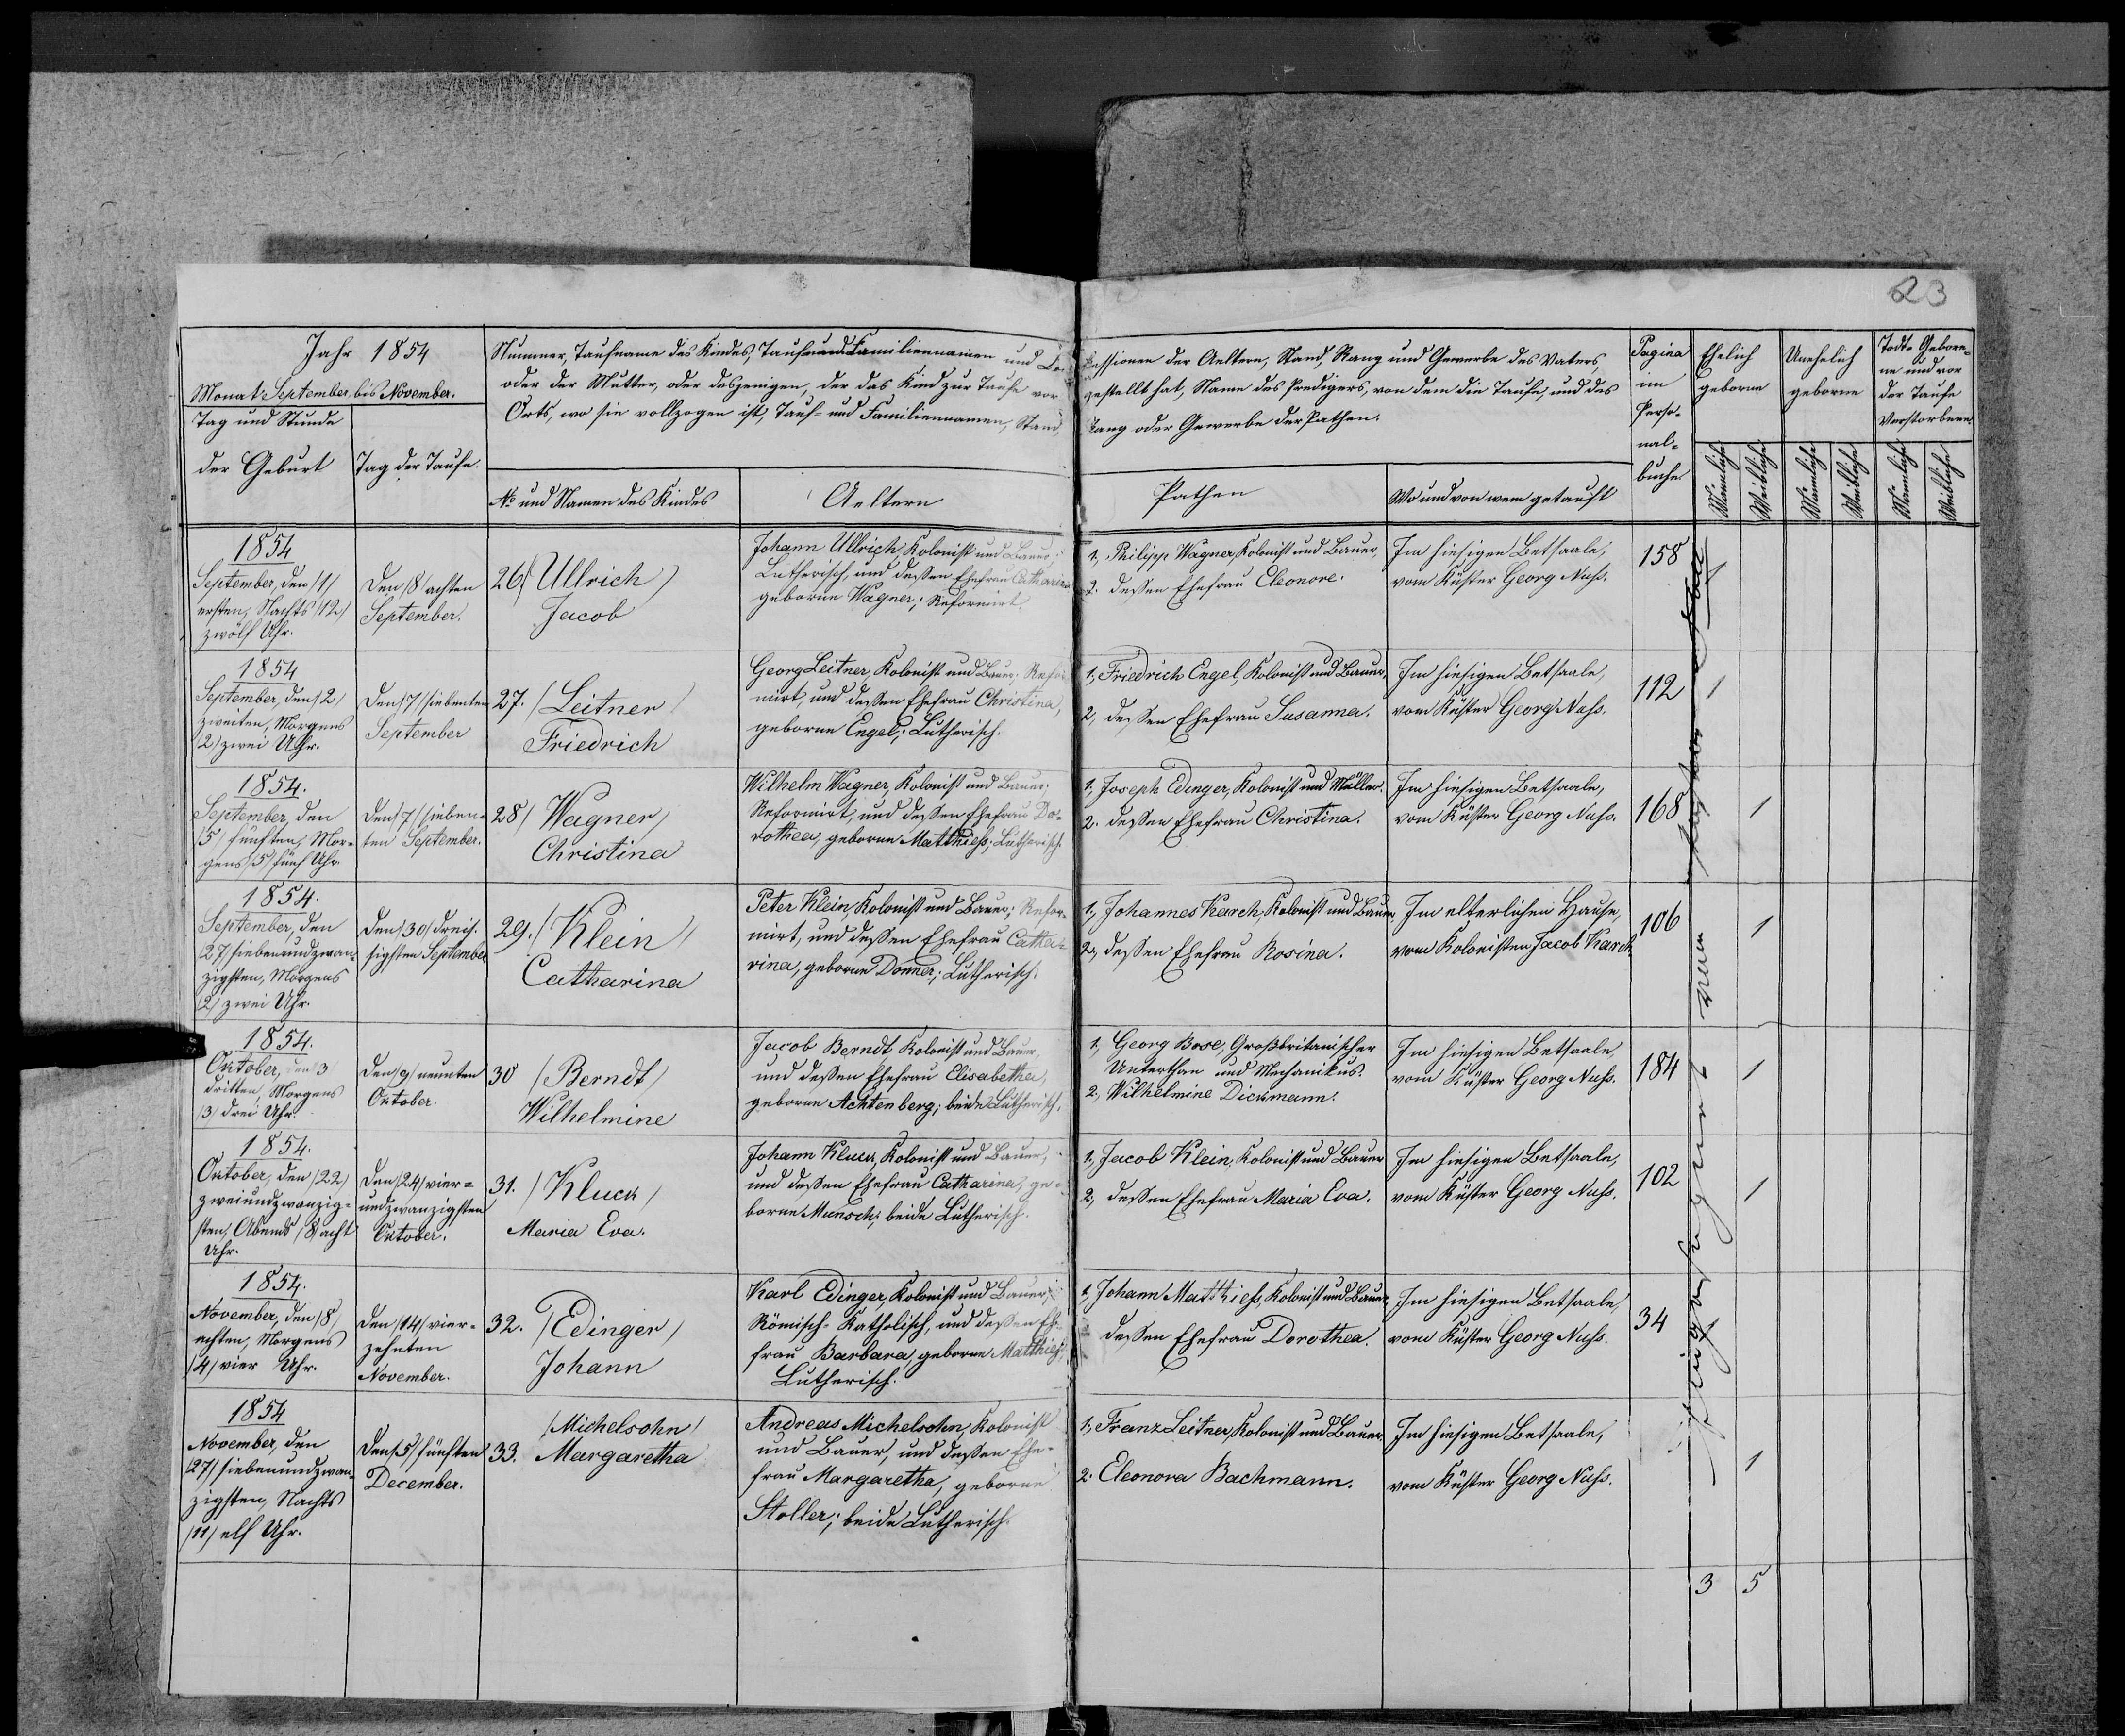 23
Jahr 1854
Monat September bis November.
Tag und Stunde
der Geburt
Tag der Taufe.
Nummer, Taufname des Kindes, Tauf- und Familiennamen und Confessionen der Aeltern, Stand, Rang und Gewerbe des Vaters,
oder der Mutter, oder desjenigen, der das Kind zur Taufe vorgestellt hat, Name des Predigers, von dem die Taufe, und des
Orts, wo sie vollzogen ist, Tauf- und Familiennamen, Stand, Rang oder Gewerbe der Pathen.
No und Namen des Kindes
Aeltern
Pathen
Wo und von wem getauft
Pagina
im
Perso-
nal-
buche
Ehelich
geborne
Unehelich
geborne
Todt-Gebore-
ne und vor
der Taufe
Verstorbene
Männliche
Weibliche
Männliche
Weibliche
Männliche
Weibliche
1854
September, den /1/
ersten, Nachts /12/
zwölf Uhr.
Den /8/ achten
September.
26 /Ullrich/
Jacob
Johann Ullrich, Kolonist und Bauer;
Lutherisch, und dessen Ehefrau Catharina
geborne Wagner; Reformirt.
1, Philipp Wagner, Kolonist und Bauer,
2. dessen Ehefrau Eleonore.
Im hiesigen Betsaale,
vom Küster Georg Nuss.
158
1
1854
September, den /2/
zweiten, Morgens
/2/ zwei Uhr.
Den /7/ siebenten
September
27. /Leitner/
Friedrich
Georg Leitner, Kolonist und Bauer; Refor-
mirt, und dessen Ehefrau Christina,
geborne Engel; Lutherisch.
1, Friedrich Engel, Kolonist und Bauer,
2, dessen Ehefrau Susanna.
Im hiesigen Betsaale,
vom Küster Georg Nuss.
112
1
1854.
September, den
/5/ fünften, Mor-
gens /5/ fünf Uhr.
Den /7/ sieben-
ten September.
28 /Wagner/
Christina
Wilhelm Wagner, Kolonist und Bauer;
Reformirt, und dessen Ehefrau Do-
rothea, geborne Matthiess; Lutherisch.
1, Joseph Edinger, Kolonist und Müller.
2. dessen Ehefrau Christina.
Im hiesigen Betsaale,
vom Küster Georg Nuss.
168
1
1854.
September, den
/27/ siebenundzwan-
zigsten, Morgens
/2/ zwei Uhr.
Den /30/ dreis-
sigsten September
29. /Klein/
Catharina
Peter Klein, Kolonist und Bauer; Refor-
mirt, und dessen Ehefrau Catha-
rina, geborne Donner; Lutherisch.
1, Johannes Karch, Kolonist und Bauer,
2, dessen Ehefrau Rosina.
Im elterlichen Hause,
vom Kolonisten Jacob Karch.
106
1
1854.
Oktober, den 3
dritten, Morgens
/3/ drei Uhr.
Den /9/ neunten
Oktober.
30 /Berndt/
Wilhelmine
Jacob Berndt, Kolonist und Bauer,
und dessen Ehefrau Elisabetha,
geborne Achtenberg; beide Lutherisch.
1, Georg Bose, Großbritanischer
Unterthan und Mechanikus.
2, Wilhelmine Dickmann.
Im hiesigen Betsaale,
vom Küster Georg Nuss.
184
1
1854.
Oktober, den /22/
zweiundzwanzig-
sten, Abends /8/ acht
Uhr.
Den /24/ vier-
undzwanzigsten
Oktober.
31. /Kluck/
Maria Eva.
Johann Kluck, Kolonist und Bauer,
und dessen Ehefrau Catharina, ge-
borne Munsch; beide Lutherisch.
1, Jacob Klein, Kolonist und Bauer
2, dessen Ehefrau Maria Eva.
Im hiesigen Betsaale,
vom Küster Georg Nuss.
102
1
1854.
November, den /8/
achten, Morgens
/4/ vier Uhr.
Den /14/ vier-
zehnten
November.
32. /Edinger/
Johann
Karl Edinger, Kolonist und Bauer;
Römisch-Katholisch, und dessen Ehe-
frau Barbara, geborne Matthiess;
Lutherisch.
1, Johann Matthiess, Kolonist und Bauer,
dessen Ehefrau Dorothea.
Im hiesigen Betsaale,
vom Küster Georg Nuss.
34
1854
November, den
/27/ siebenundzwan-
zigsten, Nachts
/11/ elf Uhr.
Den /5/ fünften
December.
33. /Michelsohn/
Margaretha
Andreas Michelsohn, Kolonist
und Bauer, und dessen Ehe-
frau Margaretha, geborne
Stoller; beide Lutherisch.
1, Franz Leitner, Kolonist und Bauer.
2. Eleonora Bachmann.
Im hiesigen Betsaale,
vom Küster Georg Nuss.
1
3 5